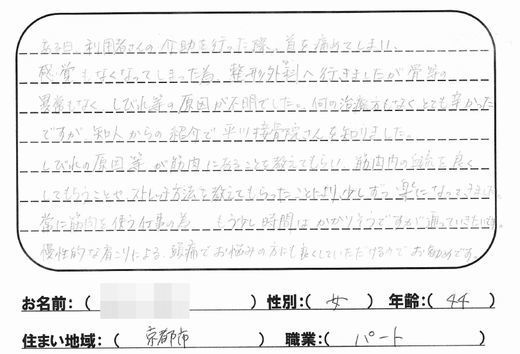 ある日、利用者さんの介助を行った際、首を痛めてしまい、
感覚もなくなってしまった為、整形外科へ行きましたが骨等の
異常もなく、しびれ等の原因が不明でした。何の治療方もなくとても辛かった
ですが、知人からの紹介で平川接骨院さんを知りました。
しびれの原因等が筋肉にあることを教えてもらい、筋肉内の血流を良く
してもらうことや、ストレッチ方法を教えてもらったことにより、少しずつ楽になってきました。
常に筋肉を使う仕事の為 もう少し時間はかかりそうですが通っていきたいです。
慢性的な肩こりによる、頭痛でお悩みの方にも良くしていただけるのでお勧めです。
お名前:( ) 性別:( 女 ) 年齢:( 44 )
住まい地域:( 京都市 ) 職業:( パート )